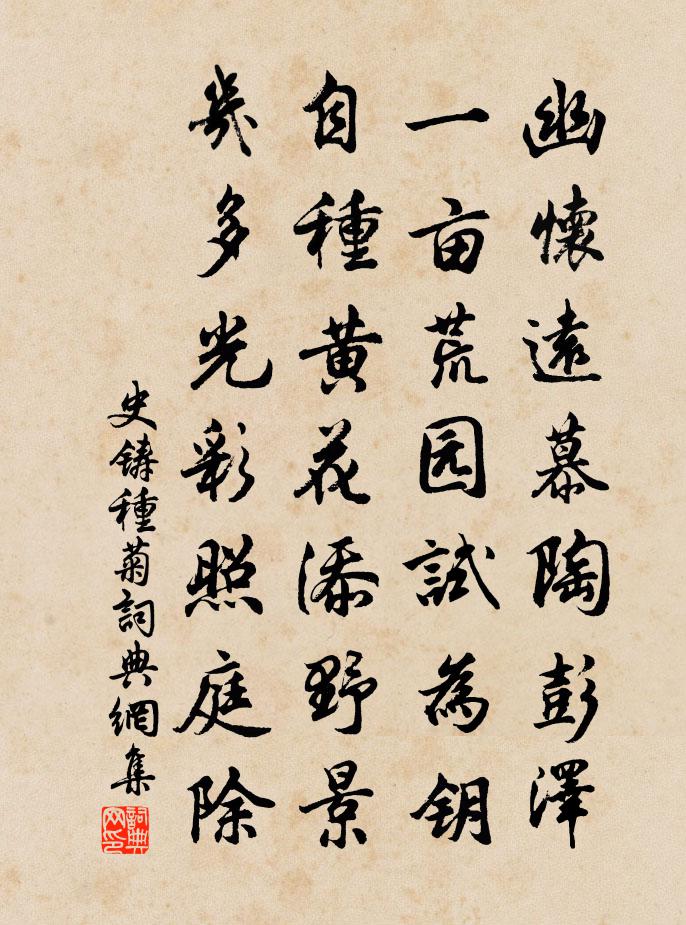 幽懷遠慕陶彭澤
一亩荒园試為钥
自種黄花添野景
幾多光彩照庭除
史鑄種菊詞典網集
詞典網印